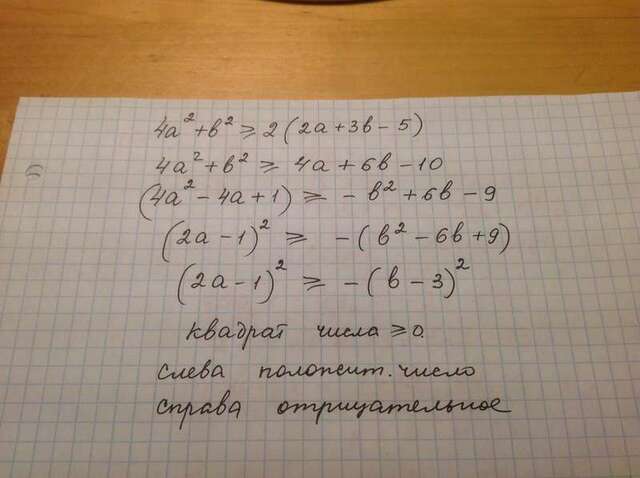 4a² + b² ⩾ 2(2a + 3b - 5)
4a² + b² ⩾ 4a + 6b - 10
(4a² - 4a + 1) ⩾ - b² + 6b - 9
(2a - 1)² ⩾ -(b² - 6b + 9)
(2a - 1)² ⩾ -(b - 3)²
квадрат числа ⩾ 0.
слева положит. число
справа отрицательное